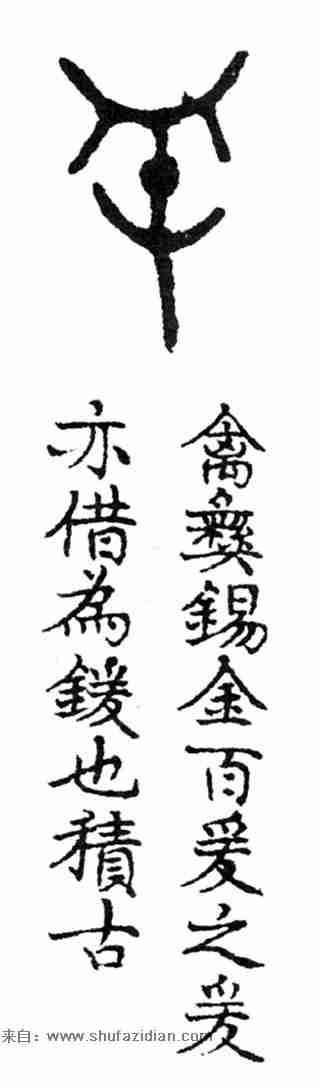 禽彝錫金百爰之爰
亦借為鍰也積古
来自：www.shufazidian.com